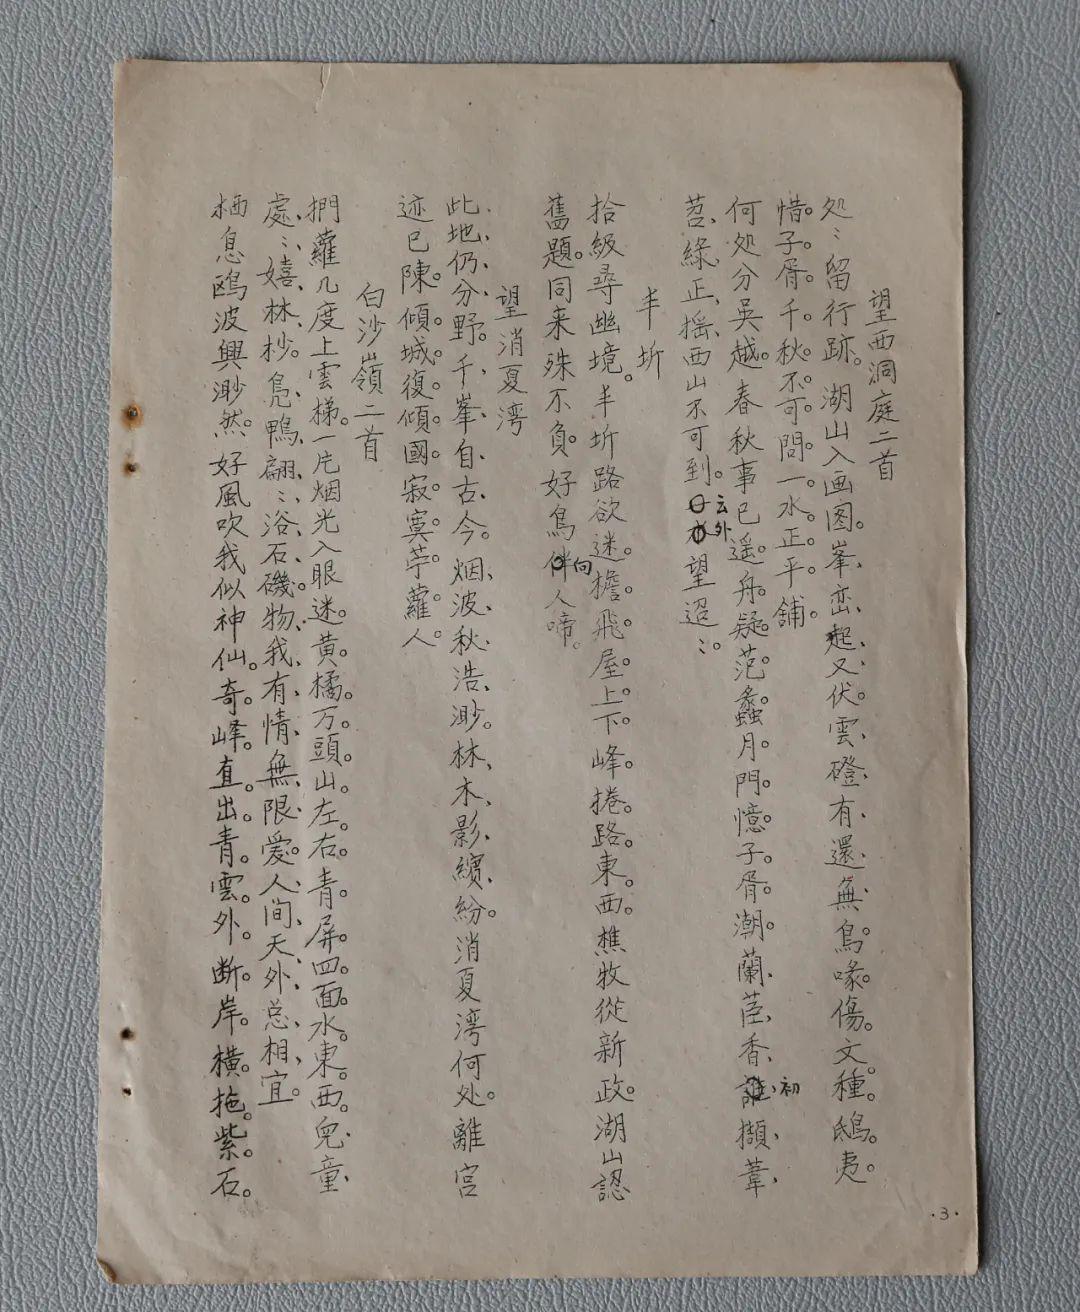 望西洞庭二首
处〻留行跡。湖山入画图。峯峦起又伏。雲磴有還無。鳥喙傷文種。鴟夷
惜子胥。千秋不可問。一水正平舖。
何处分吳越。春秋事已遥。舟疑范蠡月。門憶子胥潮。蘭茝香初擷。葦
苕綠正摇。西山不可到。云外望迢〻。
半圻
拾級尋幽境。半圻路欲迷。檐飛屋上下。峰捲路東西。樵牧從新政。湖山認
舊題。同来殊不負。好鳥向人啼。
望消夏湾
此地仍分野。千峯自古今。烟波秋浩渺。林木影繽紛。消夏湾何处。離宫
迹已陳。傾城復傾國。寂寞苧蘿人。
白沙嶺二首
捫蘿几度上雲梯。一片烟光入眼迷。黄橘万頭山左右。青屏四面水東西。兒童
處〻嬉林杪。凫鴨翩〻浴石磯。物我有情無限爱。人间天外总相宜。
栖息鸥波興渺然。好風吹我似神仙。奇峰直出青雲外。断岸横拖紫石。
·3·